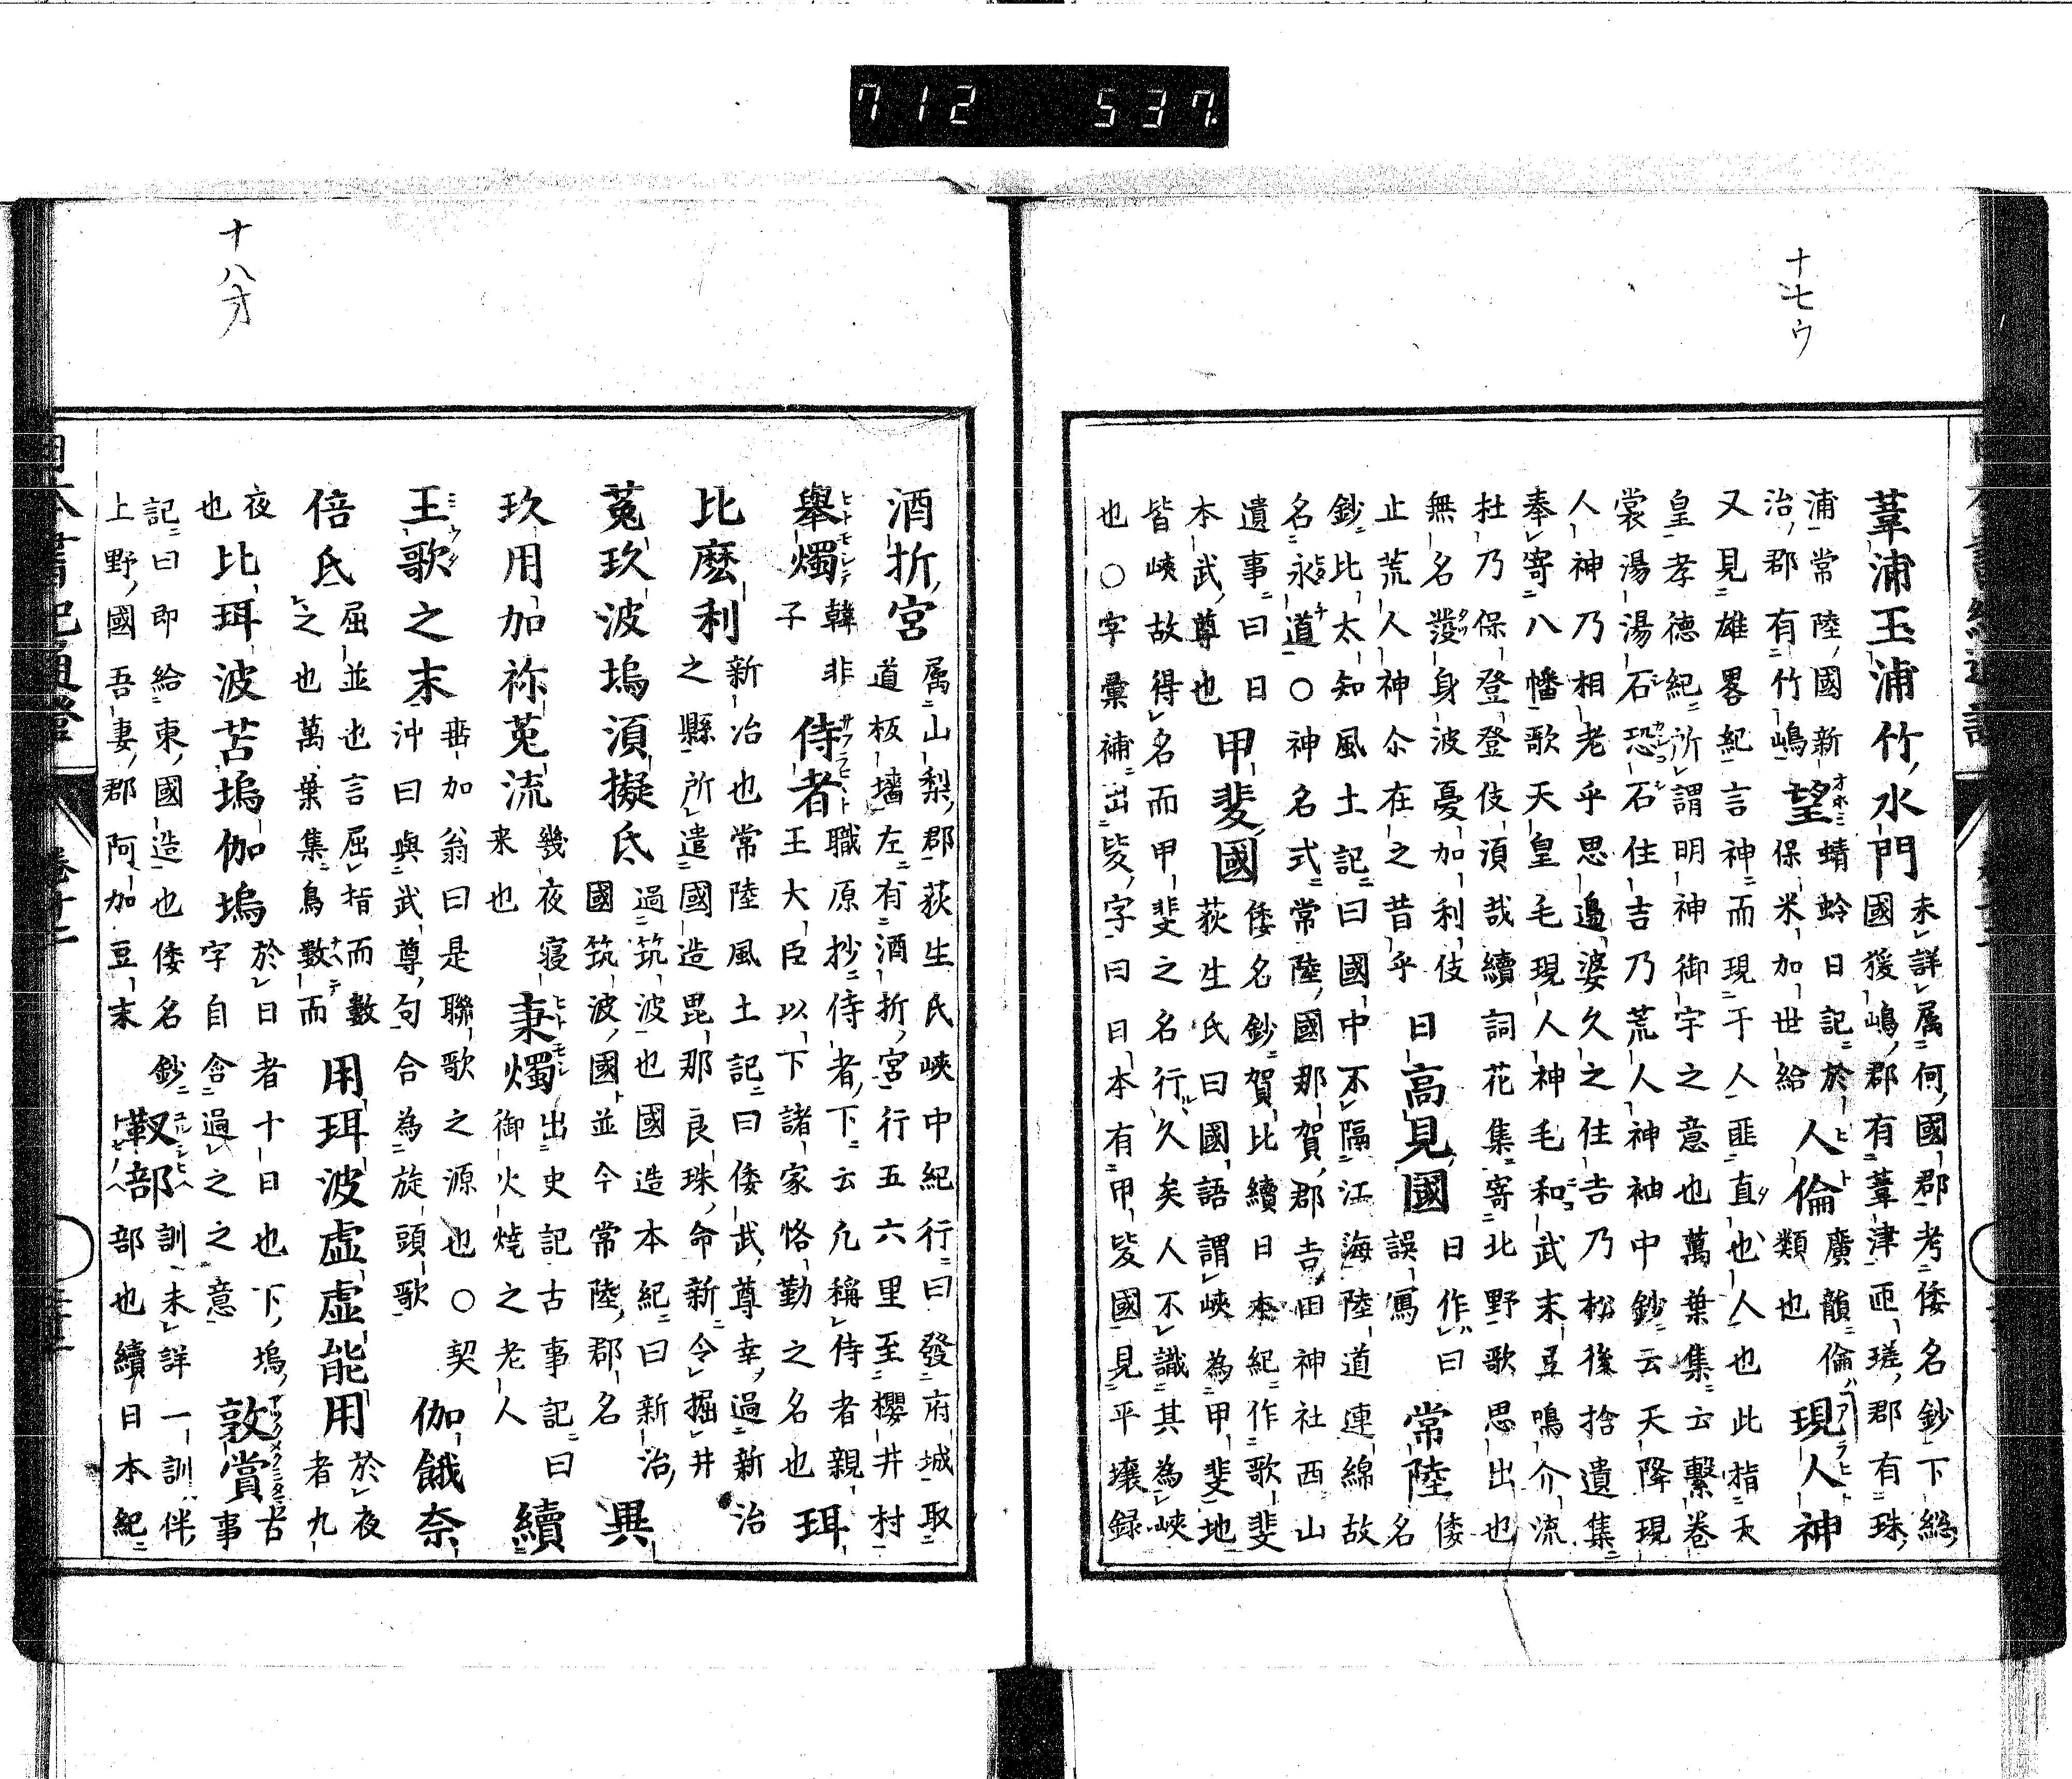 十七ウ
葦浦玉浦竹水門 未詳属何國郡考倭名鈔下総
國猨嶋郡有葦津匝瑳郡有珠
浦常陸國新
治郡有竹嶋 望 蜻蛉日記於
保米加世給 人倫 廣韻倫
類也 現人神
又見雄畧紀言神而現于人匪直也人也此指天
皇孝徳紀所謂明神御宇之意也萬葉集云繫卷
裳湯湯石恐石住吉乃荒人神袖中鈔云天降現
人神乃相老乎思邉婆久之住吉乃松後捨遺集
奉寄八幡歌天皇毛現人神毛和武末豆鳴介流
杜乃保登登伎湏哉續詞花集寄北野歌思出也
無名溌身波憂加利伎
止荒人神尒在之昔乎 日高見國 日作曰
誤寫 常陸 倭
名
鈔比太知風土記曰國中不隔江海陸道連綿故
名永道○神名式常陸國那賀郡吉田神社西山
遺事曰日
本武尊也 甲斐國 倭名鈔賀比續日本紀作歌斐
荻生氏曰國語謂峽為甲斐地
皆峽故得名而甲斐之名行久矣人不識其為峽
也○字彙補出㚇字曰日本有甲㚇國見平壤録
十八才
酒折宮 属山梨郡荻生氏峽中紀行曰發府城取
道板墻左有酒折宮行五六里至櫻井村
舉燭 韓非
子 侍者 職原抄侍者下云凢稱侍者親
王大臣以下諸家恪勤之名也 珥
比麽利 新治也常陸風土記曰倭武尊幸過新治
之縣所遣國造毘那良珠命新令掘井
菟玖波塢湏擬氐 過筑波也國造本紀曰新治
國筑波國並今常陸郡名 異
玖用加祢菟流 幾夜寝
来也 秉燭 出史記古事記曰
御火燒之老人 續
王歌之末 加翁曰是聯歌之源也○契
沖曰與武尊句合為旋頭歌 伽餓奈
倍氐 屈並也言屈指而數
之也萬葉集鳥數而 用珥波虚虚能用 於夜
者九
夜
也 比珥波苫塢伽塢 於日者十日也下塢
字自含過之之意 敦賞 古
事
記曰即給東國造也倭名鈔
上野國吾妻郡阿加豆末 靫部 訓未詳一訓伴
部也續日本紀
712 537